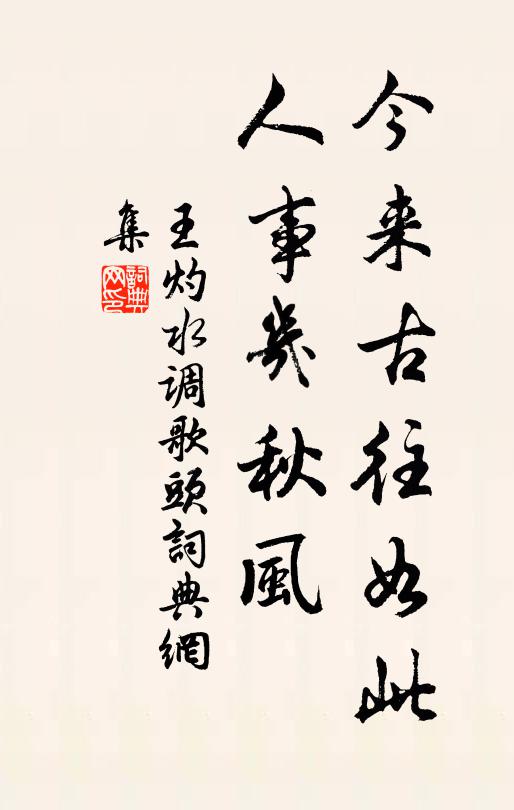 今来古往如此
人事幾秋風
王灼水调歌頭詞典網
集
詞典
网印